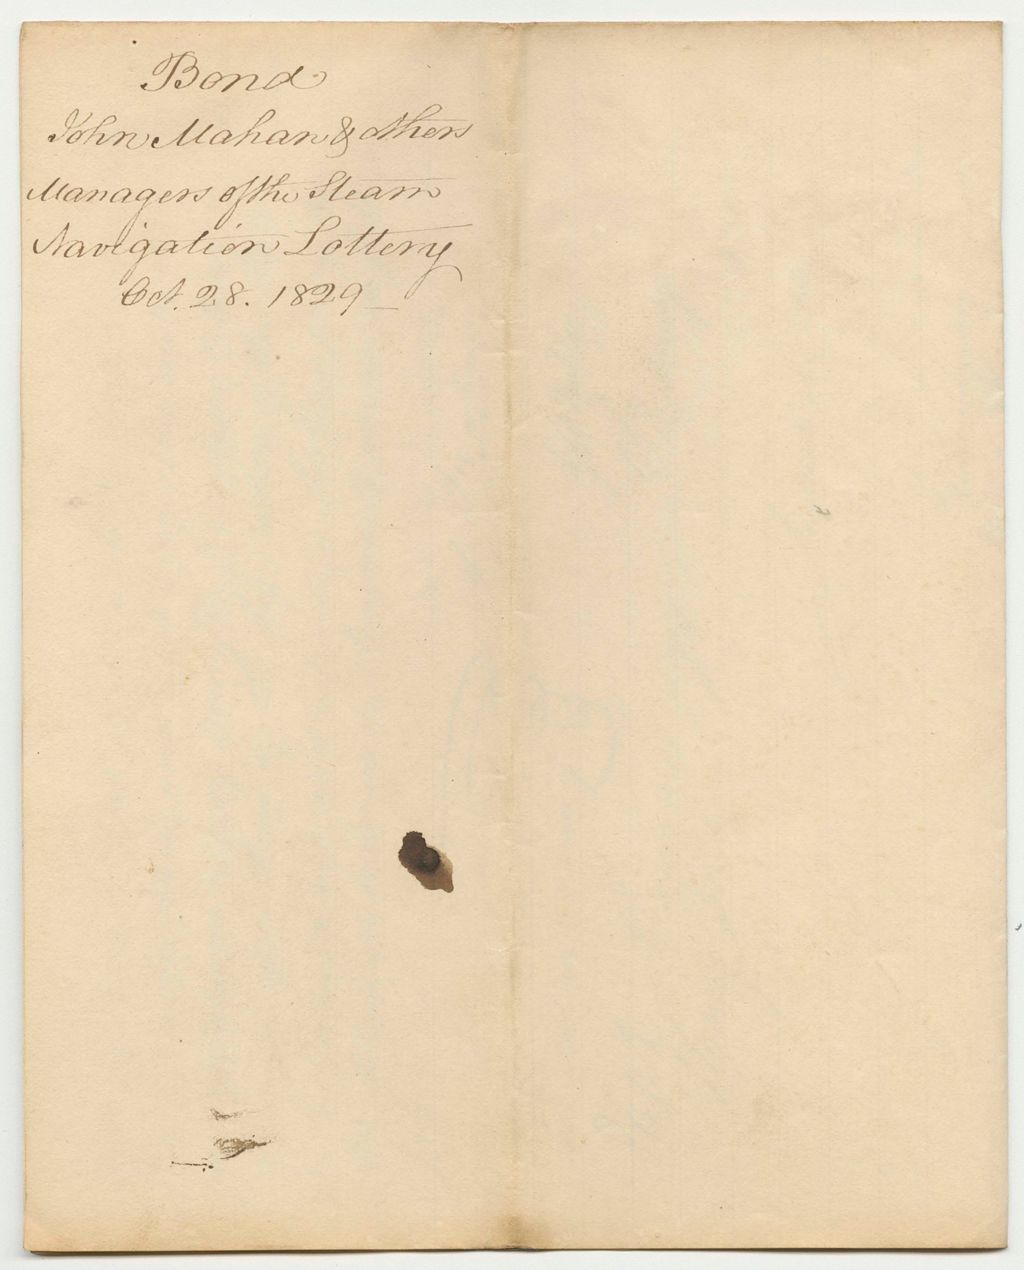 Bond
John Mahan & others
Managers of the Steam
Navigation Lottery
Oct. 28. 1829